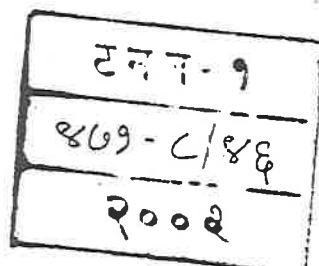 टनन-१
४७१-८/४६
२००२